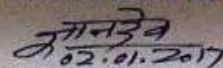 ज्ञानदेव
02.01.2017